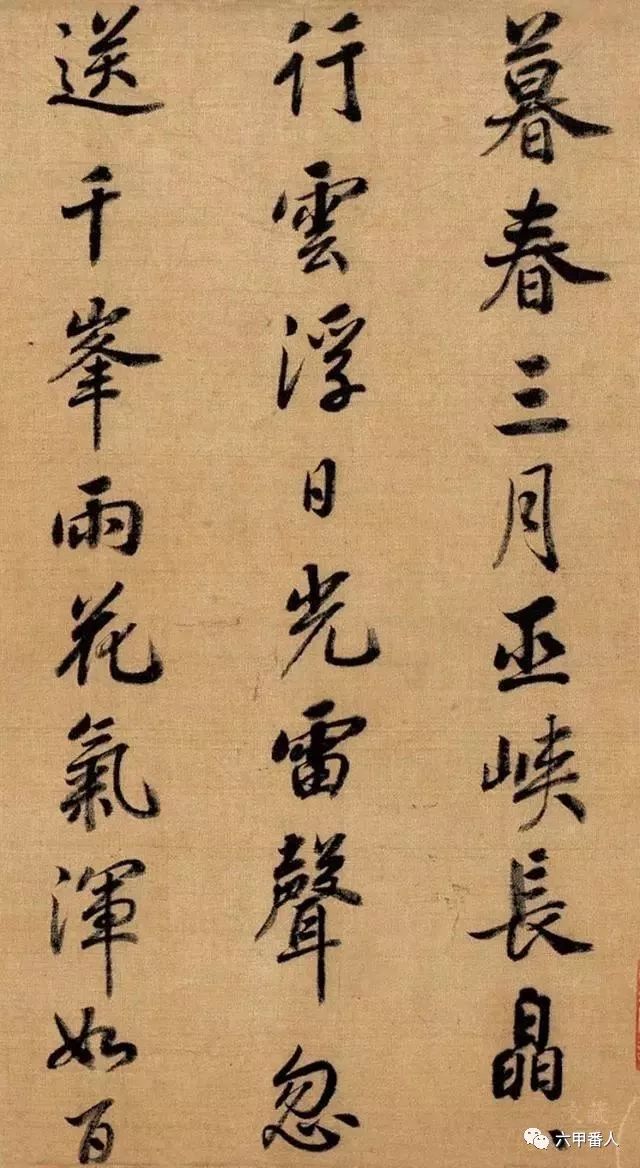 暮春三月巫峽長晶、
行雲浮日光雷聲忽
送千峯雨花氣渾如百
六甲番人